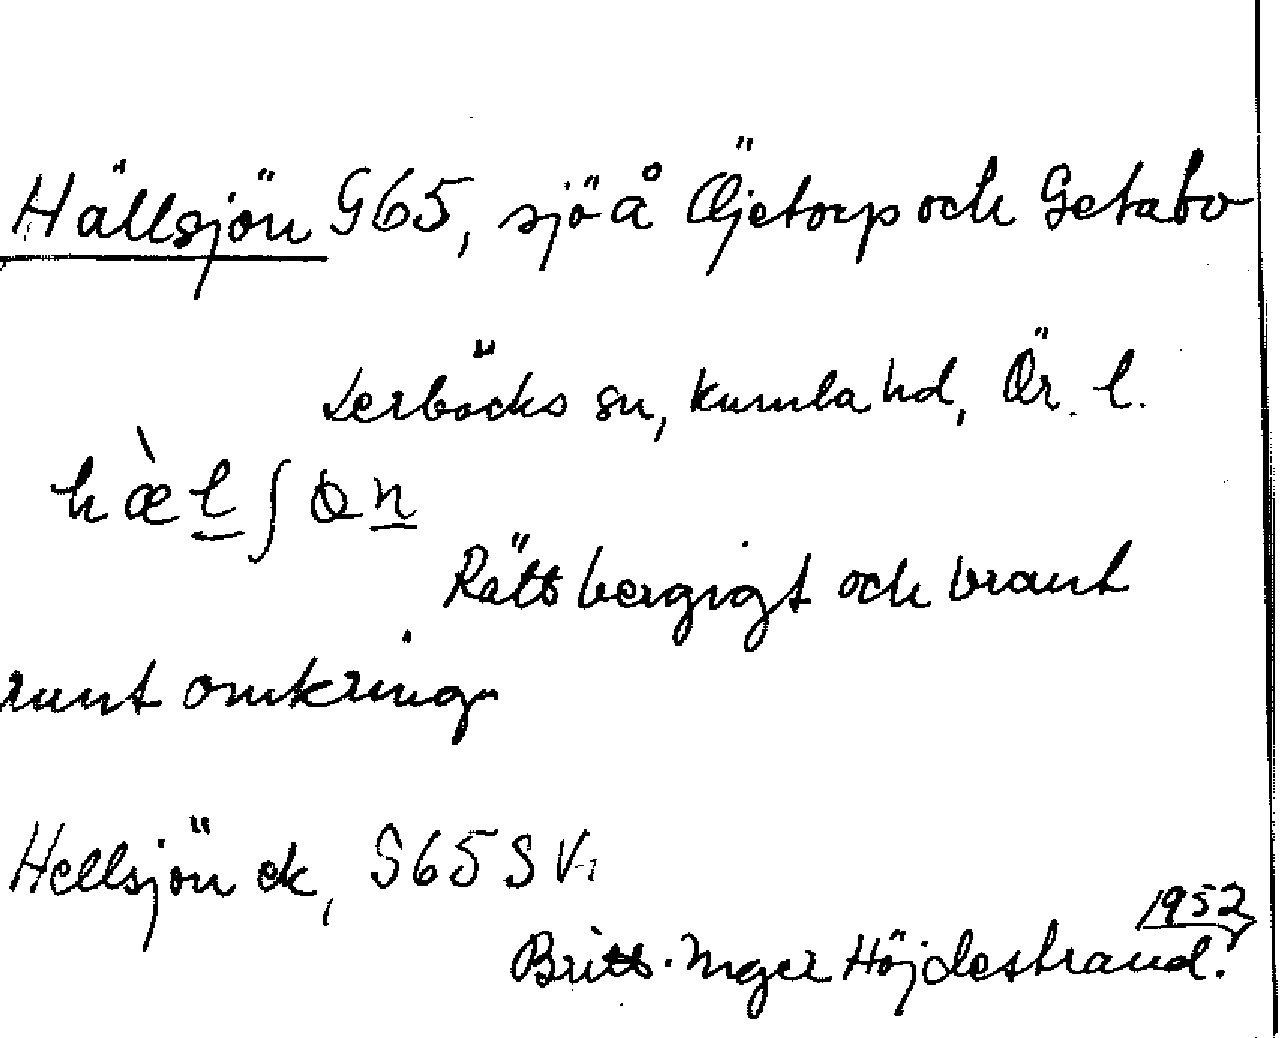 Hällsjön G65, sjö å Öjetorp och Getabo
Lerbäcks sn, Kumla hd, Ör. l.
hæ̀lʃøn
Rätt bergigt och brant
runt omkring
Hellsjön ek, S65 SV.
1952
Britt-Inger Höjdestrand.